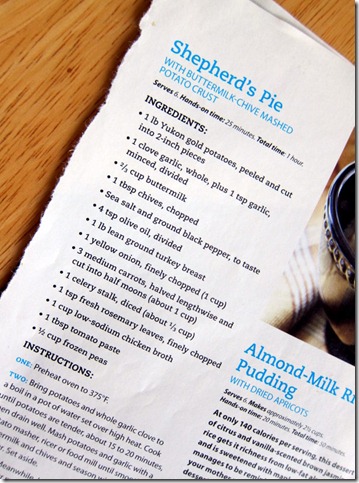 Shepherd's Pie
WITH BUTTERMILK-CHIVE MASHED
POTATO CRUST
Serves 6. Hands-on time: 25 minutes. Total time: 1 hour.
INGREDIENTS:
• 1 lb Yukon gold potatoes, peeled and cut
into 2-inch pieces
• 1 clove garlic, whole, plus 1 tsp garlic,
minced, divided
• ⅔ cup buttermilk
• 1 tbsp chives, chopped
• Sea salt and ground black pepper, to taste
• 4 tsp olive oil, divided
• 1 lb lean ground turkey breast
• 1 yellow onion, finely chopped (1 cup)
• 3 medium carrots, halved lengthwise and
cut into half moons (about 1 cup)
• 1 celery stalk, diced (about ⅓ cup)
• 1 tsp fresh rosemary leaves, finely chopped
• 1 cup low-sodium chicken broth
• 1 tbsp tomato paste
• ½ cup frozen peas
INSTRUCTIONS:
ONE: Preheat oven to 375°F.
TWO: Bring potatoes and whole garlic clove to
a boil in a pot of water set over high heat. Cook
until potatoes are tender, about 15 to 20 minutes.
then drain well. Mash potatoes and garlic with a
potato masher, ricer or food mill until smooth
milk and chives and season with
. Set aside.
Meanwhile
Almond-Milk Ri
Pudding
WITH DRIED APRICOTS
Serves 6. Makes approximately 2½ cups.
Hands-on time: 20 minutes. Total time: 50 minutes.
At only 140 calories per serving, this dessert
of citrus and vanilla-scented brown jasm
rice gets its richness from low-fat al
and is sweetened with map
manages to be remin
your mothe
des